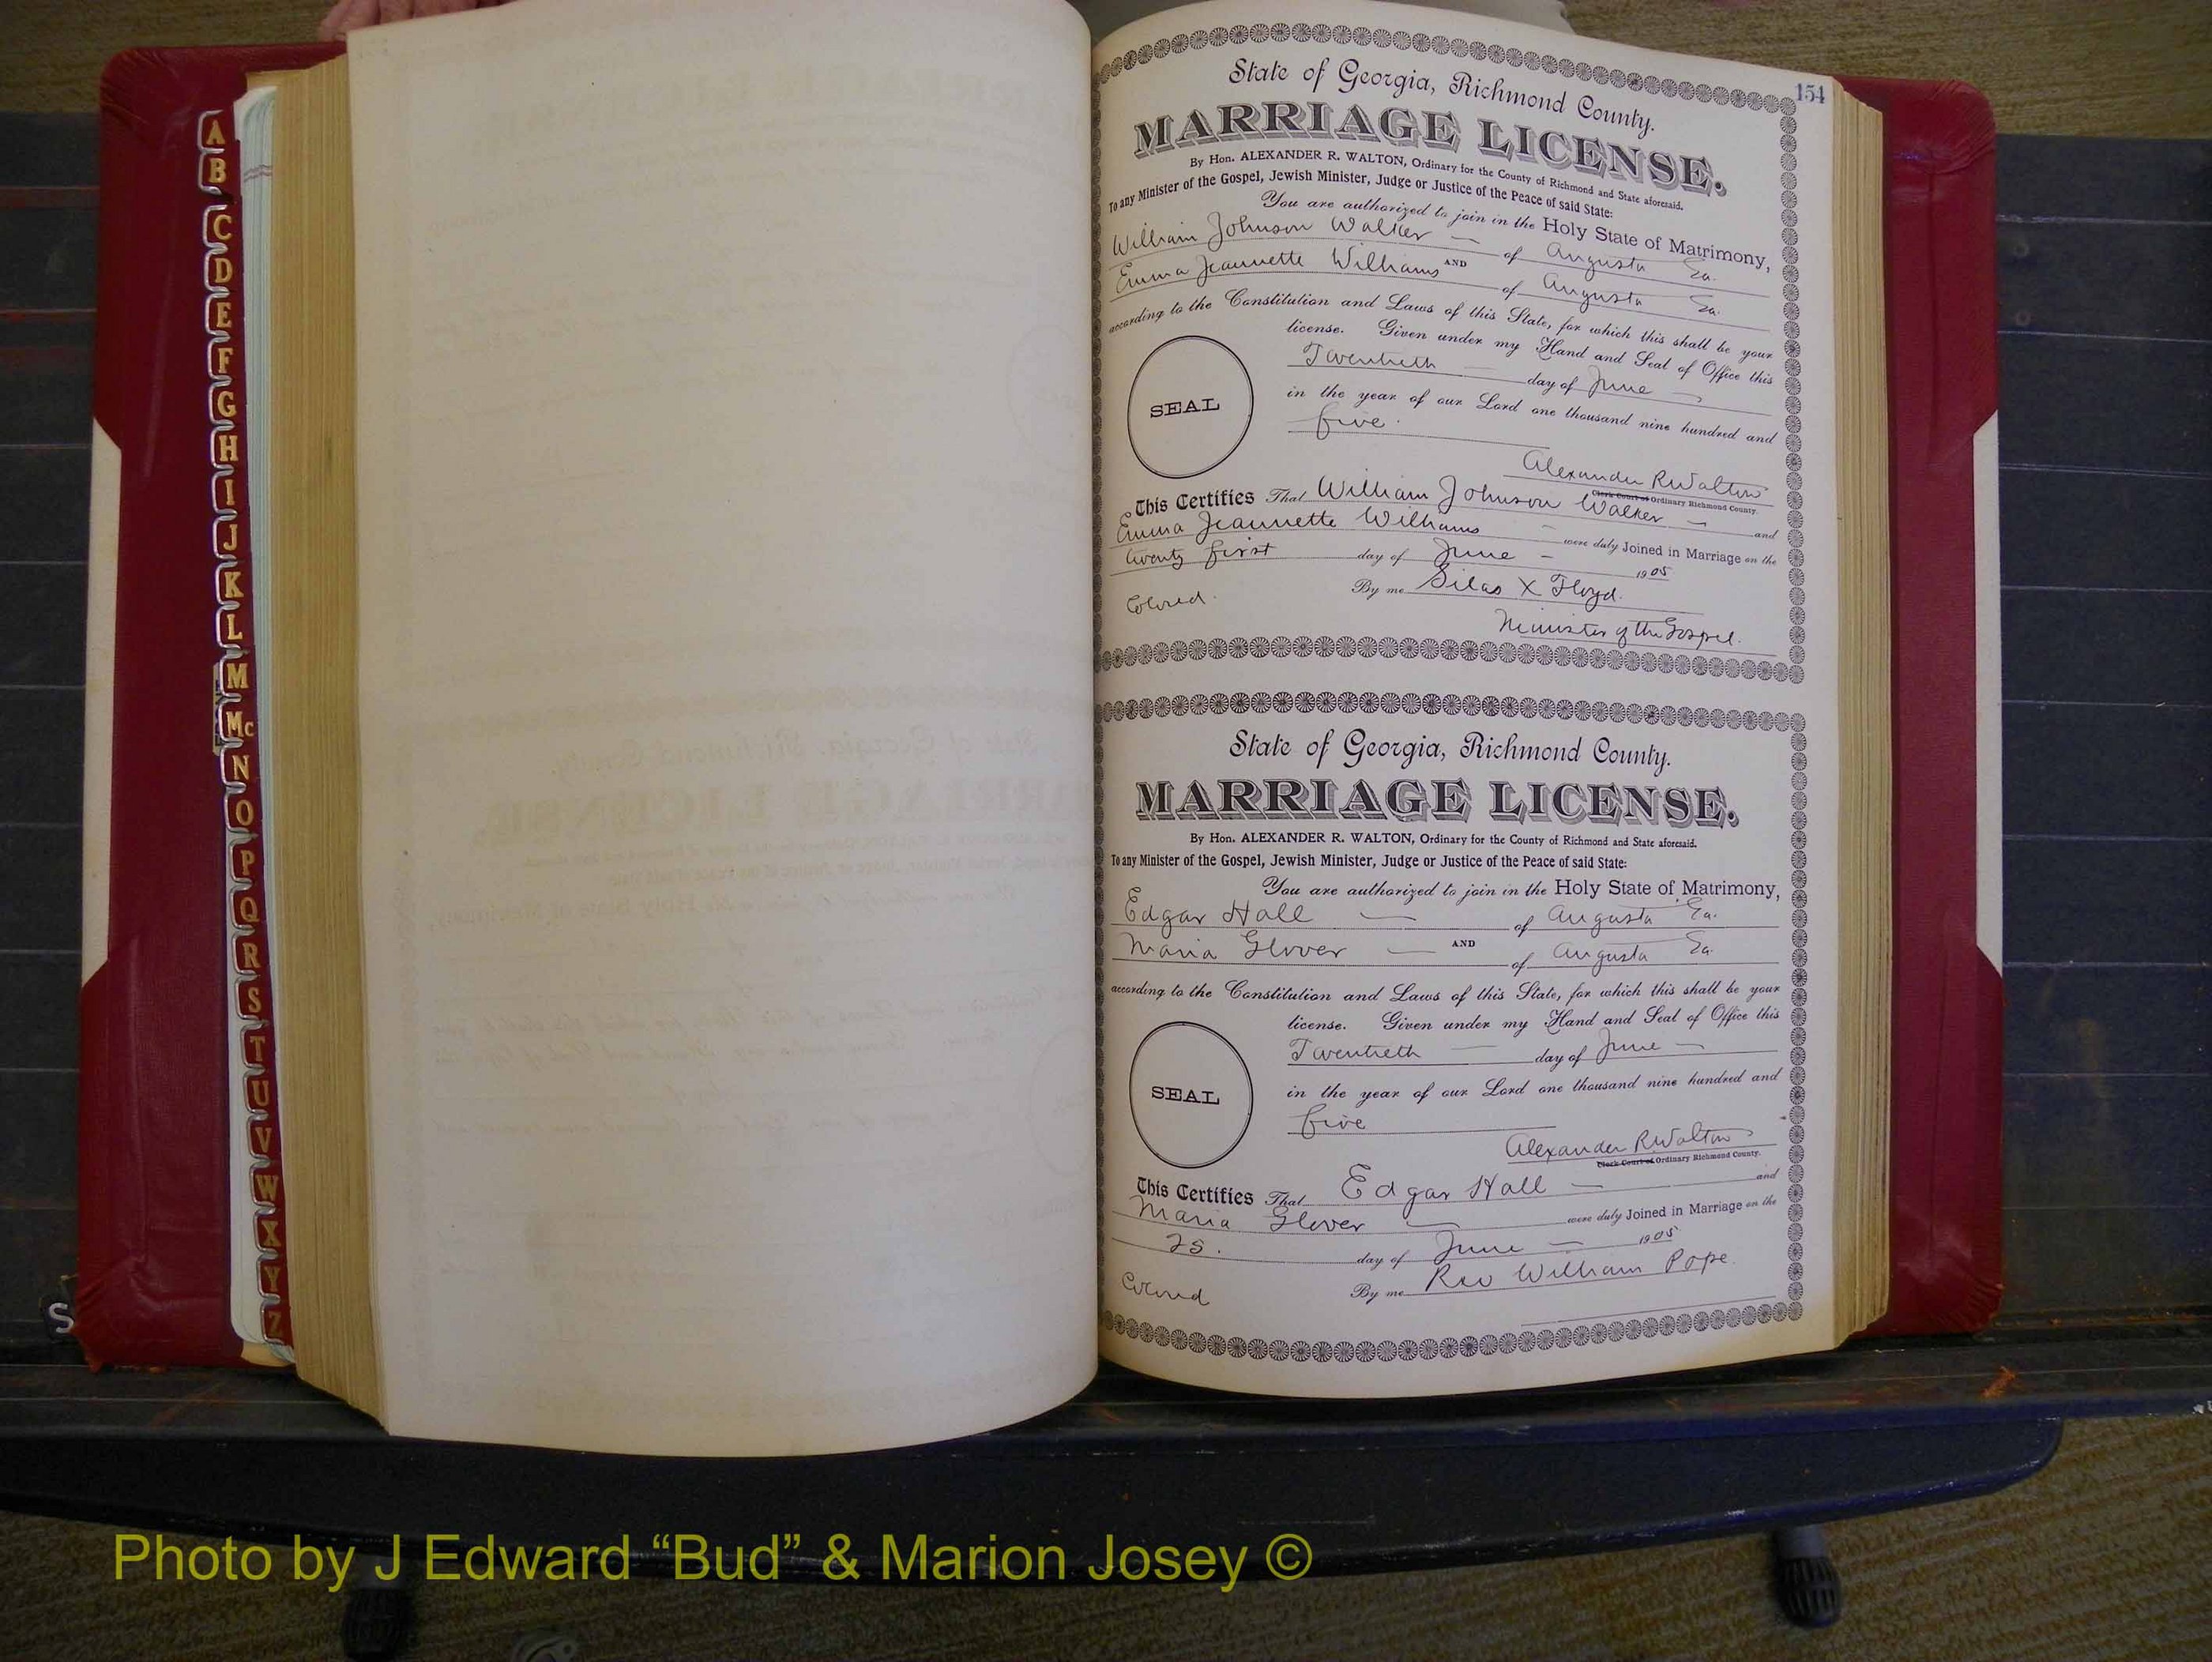 A
B
C
D
E
F
G
H
I
J
K
L
M
Mc
N
O
P
Q
R
S
T
U
V
W
X
Y
Z
S
154
State of Georgia, Richmond County.
MARRIAGE LICENSE.
By Hon. ALEXANDER R. WALTON, Ordinary for the County of Richmond and State aforesaid.
To any Minister of the Gospel, Jewish Minister, Judge or Justice of the Peace of said State:
You are authorized to join in the Holy State of Matrimony,
William Johnson Walker — of Augusta Ga.
AND
Emma Jeannette Williams of Augusta Ga.
according to the Constitution and Laws of this State, for which this shall be your
license. Given under my Hand and Seal of Office this
Twentieth — day of June —
SEAL
in the year of our Lord one thousand nine hundred and
five.
Alexander R Walton
Clerk Court of Ordinary Richmond County.
This Certifies That William Johnson Walker — and
Emma Jeannette Williams — were duly Joined in Marriage on the
twenty first day of June — 1905
Colored. By me Silas X Floyd.
Minister of the Gospel.
State of Georgia, Richmond County.
MARRIAGE LICENSE.
By Hon. ALEXANDER R. WALTON, Ordinary for the County of Richmond and State aforesaid.
To any Minister of the Gospel, Jewish Minister, Judge or Justice of the Peace of said State:
You are authorized to join in the Holy State of Matrimony,
Edgar Hall — of Augusta Ga.
AND
Maria Glover — of Augusta Ga.
according to the Constitution and Laws of this State, for which this shall be your
license. Given under my Hand and Seal of Office this
Twentieth — day of June —
SEAL
in the year of our Lord one thousand nine hundred and
five
Alexander R Walton
Clerk Court of Ordinary Richmond County.
This Certifies That Edgar Hall — and
Maria Glover — were duly Joined in Marriage on the
25. day of June — 1905
Colored By me Rev William Pope.
Photo by J Edward “Bud” & Marion Josey ©